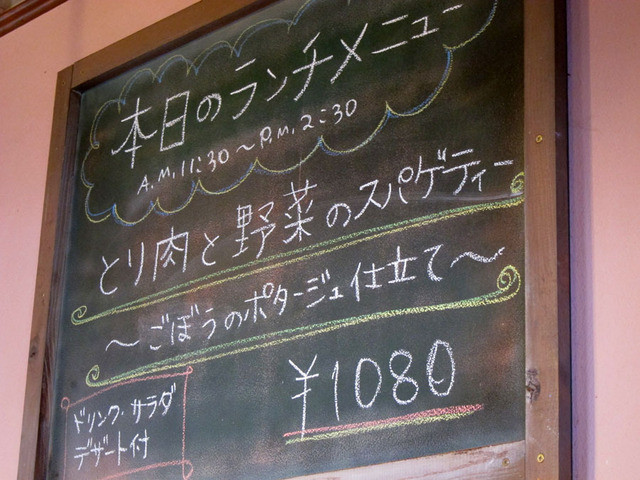 本日のランチメニュー
A.M.11:30～P.M.2:30
とり肉と野菜のスパゲティー
～ごぼうのポタージュ仕立て～
¥1080
ドリンク・サラダ
デザート付